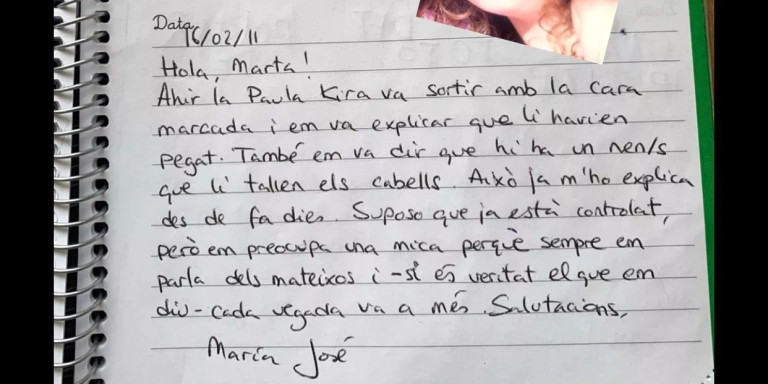 Data 16/02/11
Hola, Marta!
Ahir la Paula Kira va sortir amb la cara
marcada i em va explicar que li havien
pegat. També em va dir que hi ha un nen/s
que li tallen els cabells. Això ja m'ho explica
des de fa dies. Suposo que ja està controlat,
però em preocupa una mica perquè sempre em
parla dels mateixos i -si és veritat el que em
diu- cada vegada va a més. Salutacions,
María José